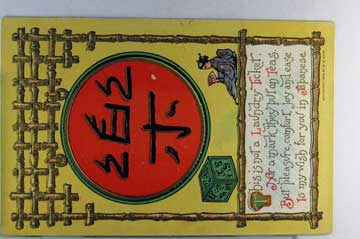 樂
This is not a Laundry Ticket.
Nor a mark they put on Teas.
But pleasure, comfort, joy and ease
Is my wish for you in Japanese.